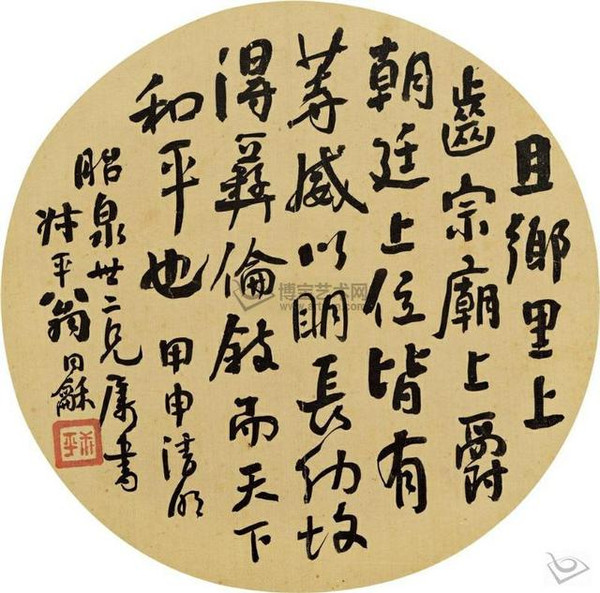 且鄉里上
齒宗廟上爵
朝廷上位皆有
等威以明長幼故
得彝倫敘而天下
和平也 甲申清明
昭泉世二兄屬書
叔平翁同龢
叔平
博宝艺术网